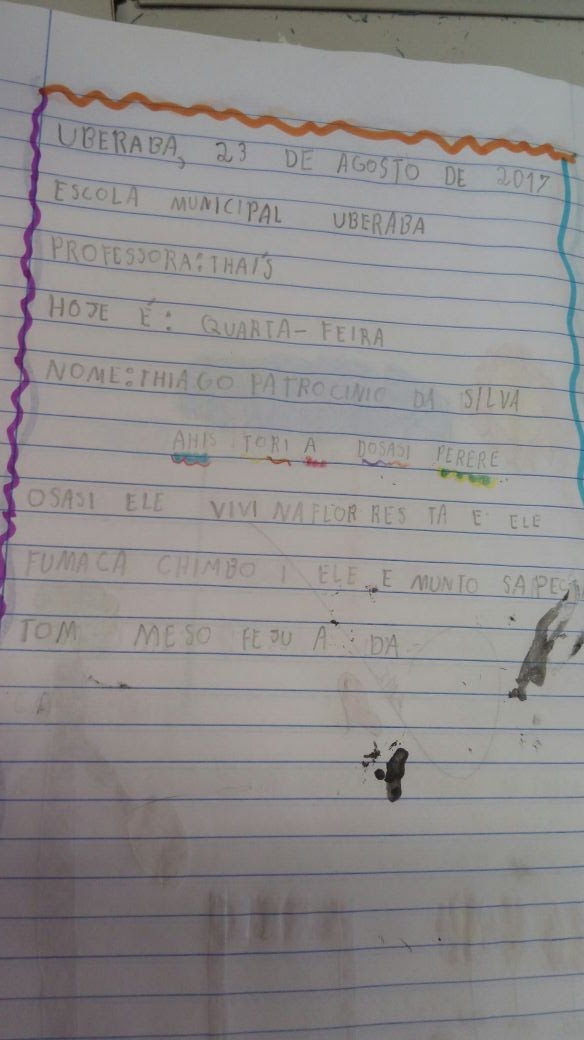 UBERABA, 23 DE AGOSTO DE 2017
ESCOLA MUNICIPAL UBERABA
PROFESSORA: THAÍS
HOJE É: QUARTA-FEIRA
NOME: THIAGO PATROCINIO DA SILVA
AHIS TORI A DOSASI PERERE
OSASI ELE VIVI NAFLOR RES TA E ELE
FUMACA CHIMBO I ELE E MUNTO SAPEC
TOM MESO FEJU A DA